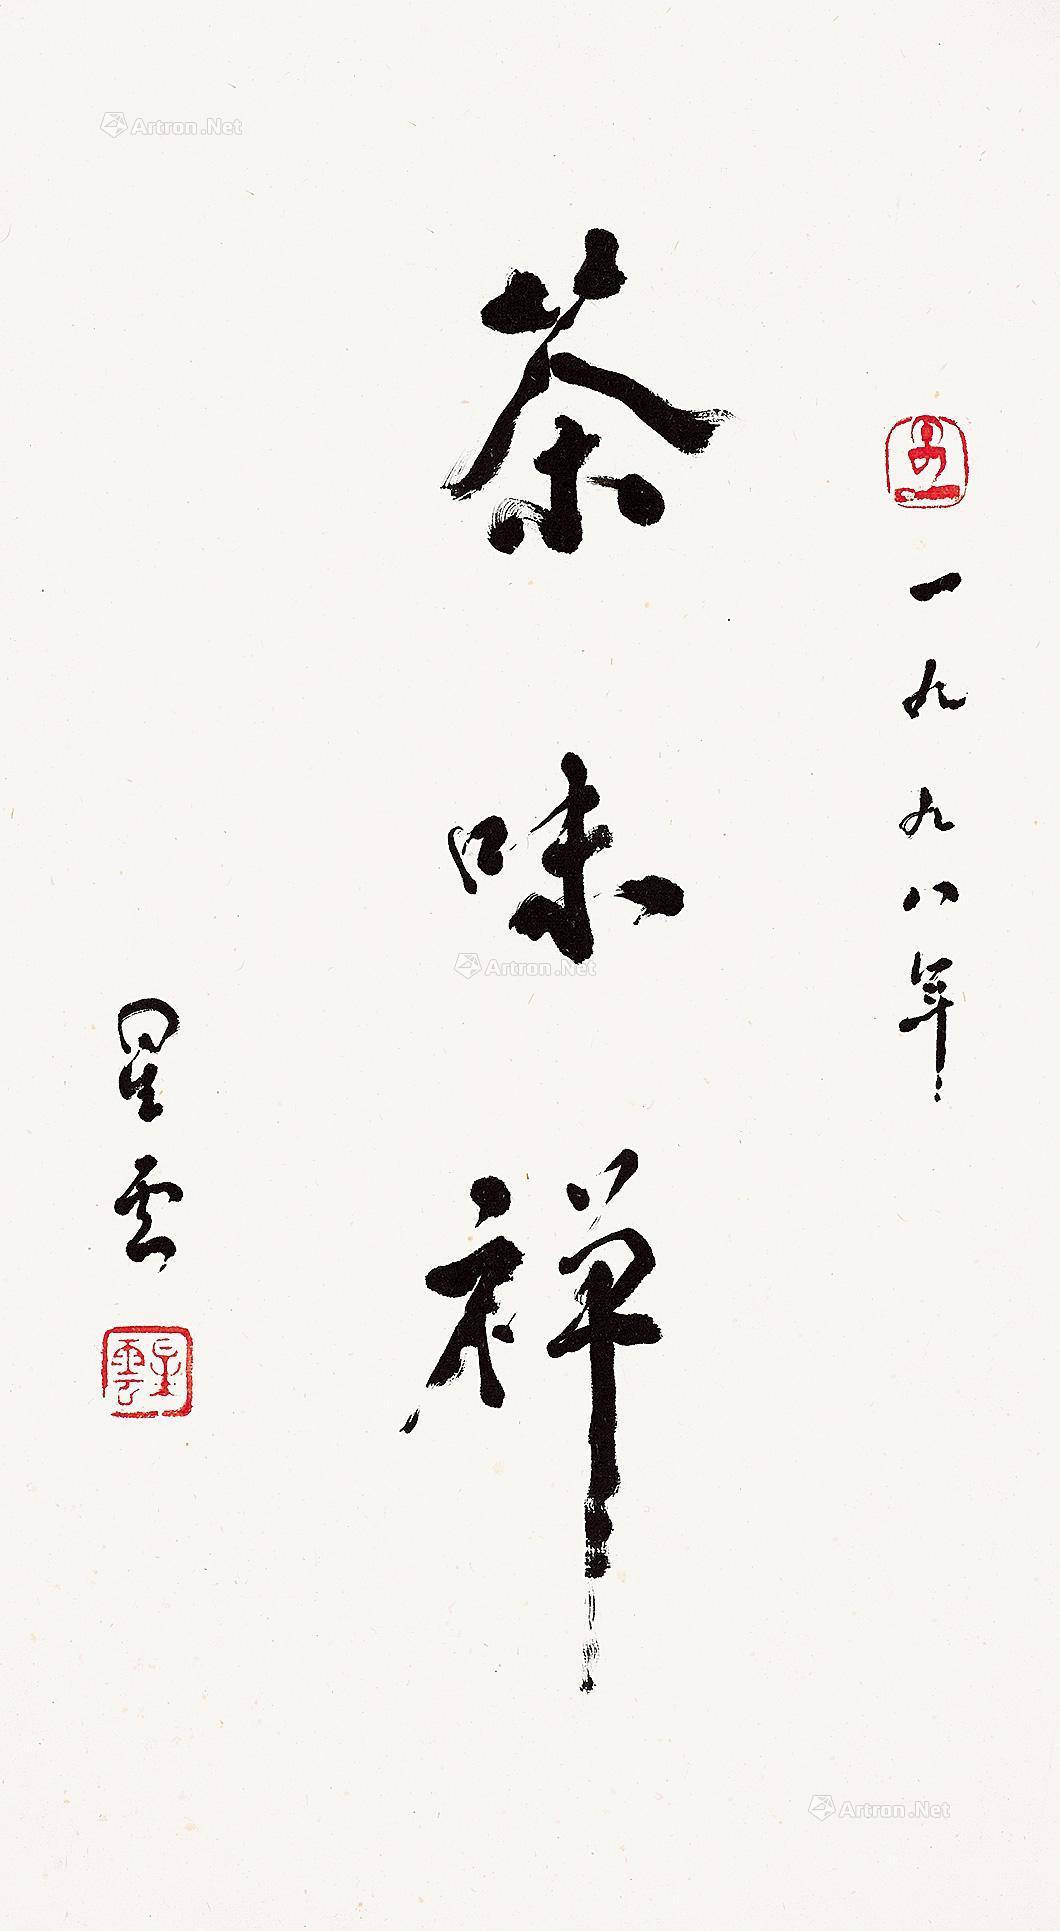 一九九八年
茶味禅
星云
星雲
Artron.Net
Artron.Net
Artron.Net